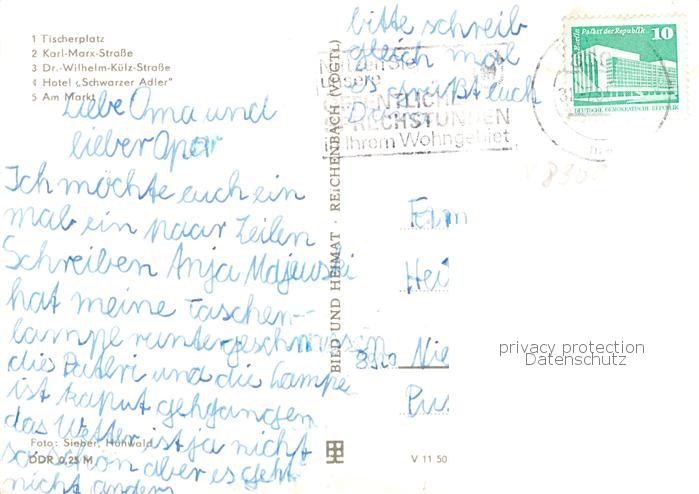 1 Tischerplatz
2 Karl-Marx-Straße
3 Dr.-Wilhelm-Külz-Straße
4 Hotel „Schwarzer Adler"
5 Am Markt
Liebe Oma und
lieber Opa
Ich möchte euch ein
mal ein paar Zeilen
Schreiben Anja
hat meine Taschen-
lampe runtergeschmissen
die und die Lampe
ist kaput gehgangen
das Wetter ist ja nicht
so schön aber es geht
nicht anders
Foto: Sieber, Hohwald
DDR 0,25 M
bitte schreib
gleich mal
es grüßt euch
unsere
ÖFFENTLICHEN
SPRECHSTUNDEN
Ihrem Wohngebiet
BILD UND HEIMAT · REICHENBACH (VOGTL)
V 11 50
Berlin Palast der Republik
10
DEUTSCHE DEMOKRATISCHE REPUBLIK
Hei
Nie
privacy protection
Datenschutz